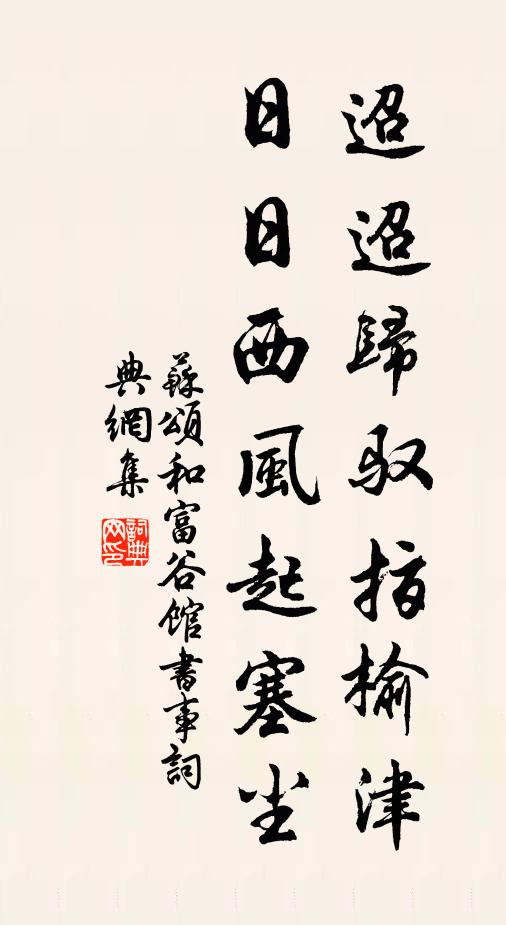 迢迢歸馭指榆津
日日西風起塞尘
蘇頌和富谷館書事詞
典網集
詞典
网印